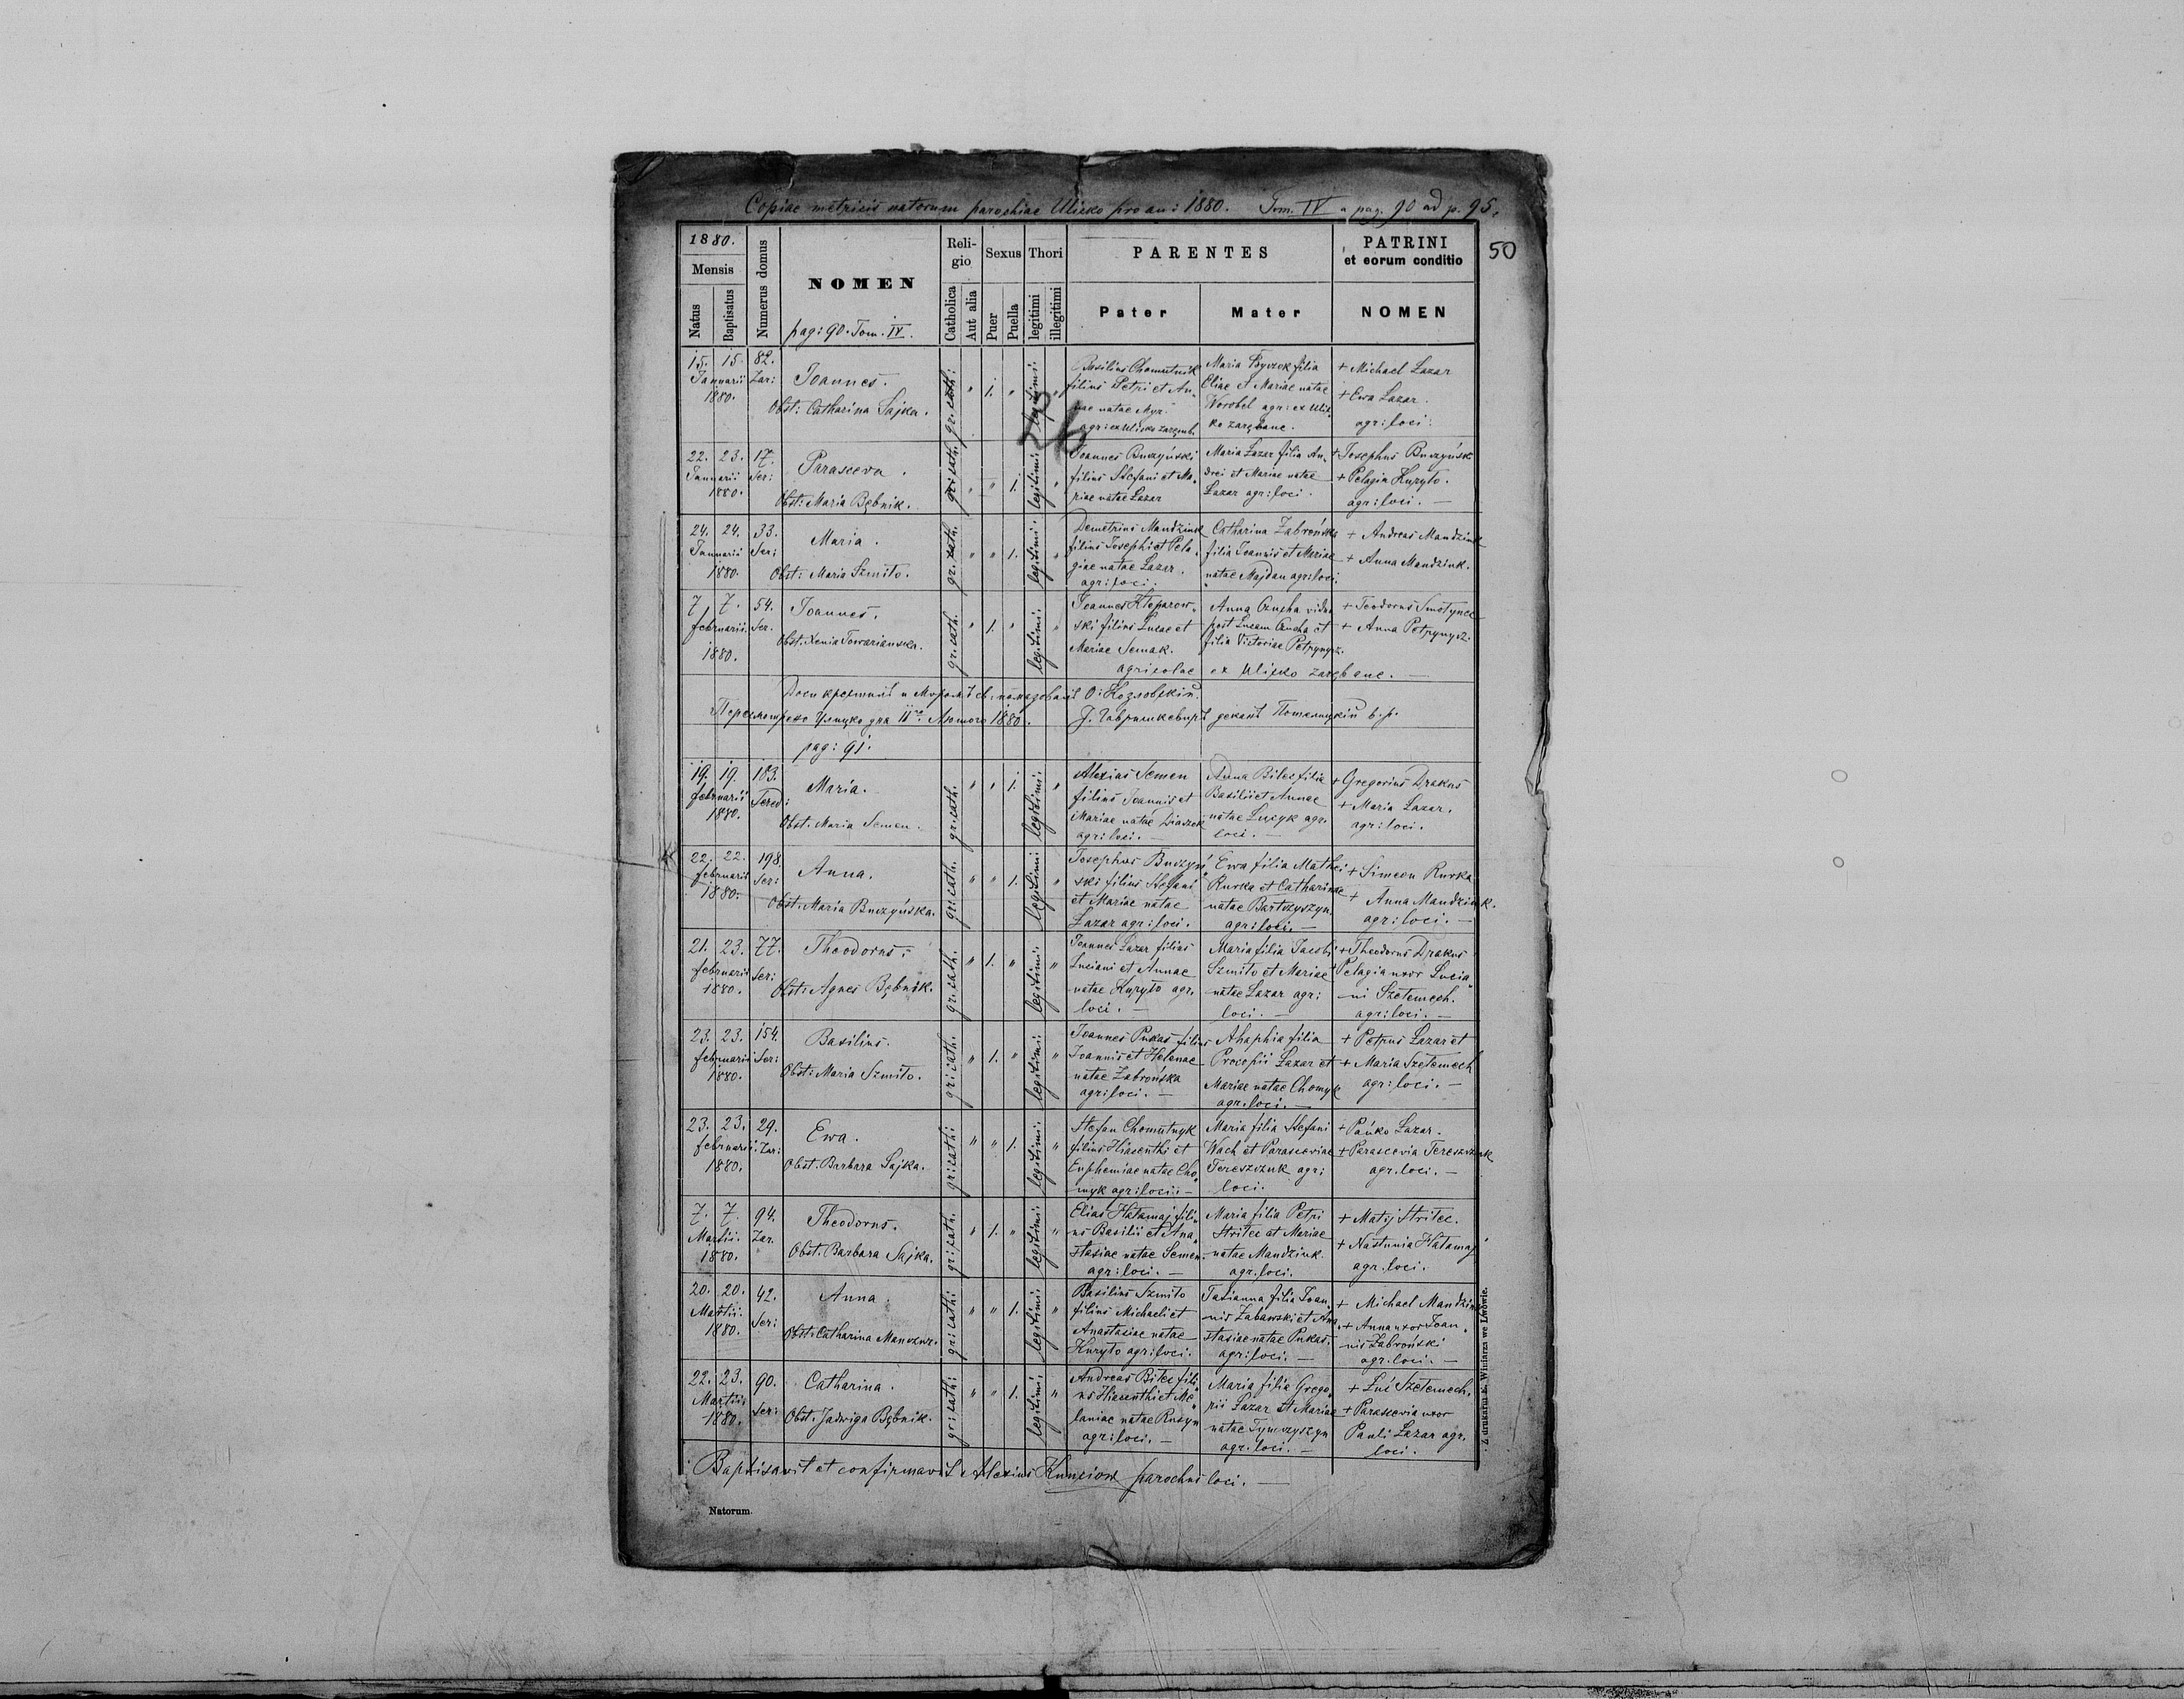 Copiae metricis natorum parochiae Ulicko pro an: 1880. Tom. IV a pag. 90 ad p. 95.
50
1880.
Mensis
Natus
Baptisatus
Numerus domus
NOMEN
pag: 90. Tom. IV.
Religio
Catholica
Aut alia
Sexus
Puer
Puella
Thori
legitimi
illegitimi
PARENTES
Pater
Mater
PATRINI
et eorum conditio
NOMEN
26
15. 15. 82.
Januarii Zar:
1880.
Joannes.
Obst: Catharina Sajka.
gr. cath: " 1. " legitimi: "
Basilius Chomutnik
filius Petri et An„
nae natae
agr: ex Ulicko zaręmb.
Maria filia
Eliae et Mariae natae
Worobel agr: ex Ulic
ko zarębane.
+ Michael Lazar
+ Ewa Lazar.
agr: loci:
22. 23. 17.
Januarii Ser:
1880.
Parasceva.
Obst: Maria Bębnik.
gr: cath. " " 1. legitimi: "
Joannes Buczyński
filius Stefani et Ma„
riae natae Łazar
Maria Łazar filia An„
drei et Mariae natae
Łazar agr: loci.
+ Josephus Buczyński
+ Pelagia Kuryło.
agr: loci. —
24. 24. 33.
Januarii Ser:
1880.
Maria.
Obst: Maria Szmiło.
gr. cath. " " 1. legitimi: "
Demetrius Mandziuk
filius Josephi et Pela„
giae natae Lazar.
agr: loci.
Catharina Zabrońska
filia Joannis et Mariae
natae Majdan agr: loci.
+ Andreas Mandziuk
+ Anna Mandziuk.
7. 7. 54.
februarii. Ser.
1880.
Joannes.
Obst. Xenia Towarianska.
gr. cath. " 1. " legitimi: "
Joannes Kloparow„
ski filius Lucae et
Mariae Semak.
agricolae ex Ulicko zarębane. —
Anna Czucha vidua
post Lucam Czucha et
filia Victoriae Petrynycz.
+ Teodorus Smotynec
+ Anna Petrynycz.
О: Козловскій.
1880.
pag: 91.
19. 19. 183.
februarii Tered:
1880.
Maria.
Obst. Maria Semen.
gr. cath. " " 1. legitimi: "
Alexius Semen
filius Joannis et
Mariae natae Liaszek
agr: loci. —
Anna Bilec filia
Basilii et Annae
natae Lucyk agr.
loci. —
+ Gregorius Drakus
+ Maria Lazar.
agr: loci.
22. 22. 198.
februarii Ser:
1880.
Anna.
Obst: Maria Buczyńska.
gr: cath. " " 1. legitimi: "
Josephus Buczyń„
ski filius Stefani
et Mariae natae
Łazar agr: loci.
Ewa filia Mathei
Kurka et Catharinae
natae Bartszyszyn.
agr: loci. —
+ Simeon Kurka
+ Anna Mandziuk.
agr: loci. —
21. 23. 77.
februarii Ser:
1880.
Theodorus.
Obst: Agnes Bębnik.
gr. cath. " 1. " legitimi: "
Joannes Lazar filius
Luciani et Annae
natae Kuryło agr.
loci. —
Maria filia Jacobi
Szmiło et Mariae
natae Lazar agr:
loci. —
+ Theodorus Drakus
+ Pelagia uxor Lucia„
ni Szełemech.
agr: loci. —
23. 23. 154.
februarii Ser:
1880.
Basilius.
Obst: Maria Szmiło.
gr: cath. " 1. " legitimi: "
Joannes Pukas filius
Joannis et Helenae
natae Zabrońska
agr: loci. —
Ahaphia filia
Procopii Łazar et
Mariae natae Chomyk
agr. loci. —
+ Petrus Lazar et
+ Maria Szełemech
agr: loci. —
23. 23. 29.
februarii. Zar:
1880.
Ewa.
Obst. Barbara Sajka.
gr: cath: " " 1. legitimi: "
Stefan Chomutnyk
filius Hiacenthi et
Euphemiae natae Cho„
myk agr: loci: —
Maria filia Stefani
Wach et Parasceviae
Tereszczuk agr:
loci.
+ Pańko Lazar.
+ Parascevia Tereszczuk
agr. loci. —
7. 7. 94.
Martii. Zar.
1880.
Theodorus.
Obst. Barbara Sajka.
gr: cath. " 1. " legitimi: "
Elias Hałamaj fili„
us Basilii et Ana„
stasiae natae Semen.
agr: loci. —
Maria filia Petri
Strilec et Mariae
natae Mandziuk.
agr. loci.
+ Matij Strilec.
+ Nastunia Hałamaj
agr. loci.
20. 20. 42.
Martii. Ser:
1880.
Anna.
Obst: Catharina Manczur.
gr: cath: " " 1. legitimi: "
Basilius Szmiło
filius Michaeli et
Anastasiae natae
Kuryło agr: loci.
Tatianna filia Joan„
nis Zabawski et Ana„
stasiae natae Pukas.
agr: loci. —
+ Michael Mandziuk
+ Anna uxor Joan„
nis Zabroński
agr. loci. —
22. 23. 90.
Martii. Ser:
1880.
Catharina.
Obst. Jadwiga Bębnik.
gr: cath: " " 1. legitimi: "
Andreas Bilec fili„
us Hiacenthi et Me„
laniae natae Rusyn
agr: loci. —
Maria filia Grego„
rii Łazar et Mariae
natae Tymczyszyn
agr. loci. —
+ Luć Szełemech.
+ Parascevia uxor
Pauli Lazar agr.
loci.
Baptisavit et confirmavit Alexius Kunciow parochus loci. —
Natorum.
Z drukarni E. Winiarza we Lwowie.